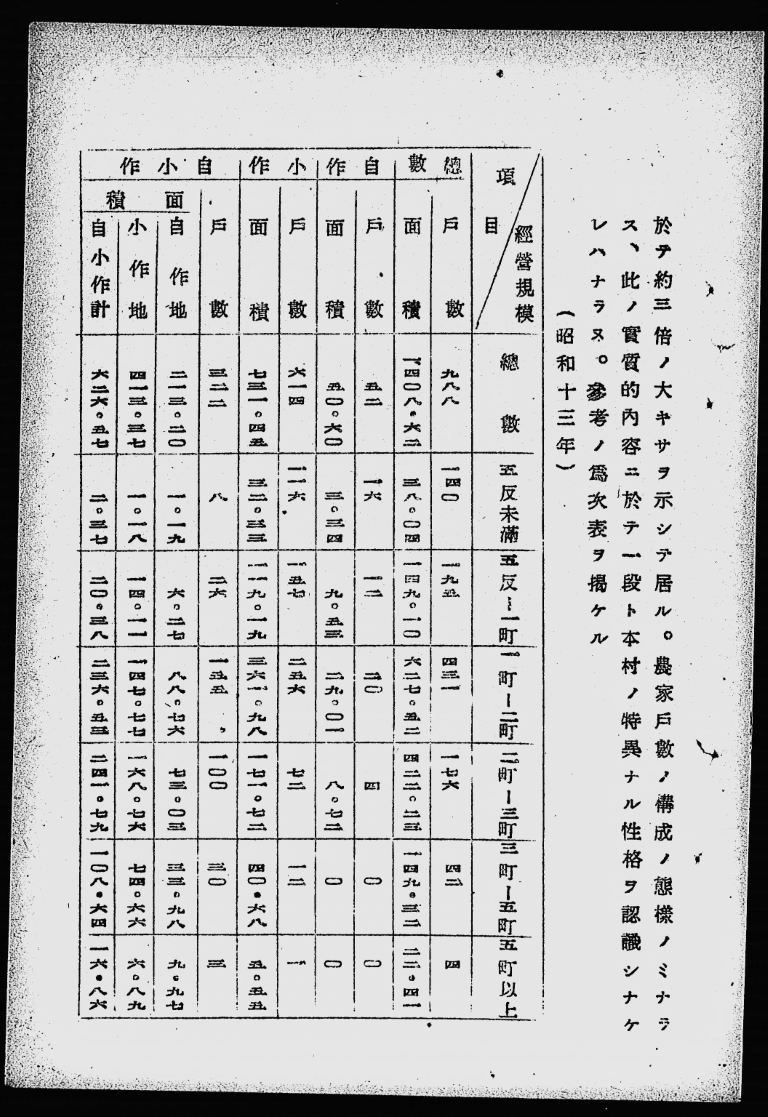 於テ約三倍ノ大キサヲ示シテ居ル。農家戶數ノ構成ノ態樣ノミナラ
ス、此ノ實質的內容ニ於テ一段ト本村ノ特異ナル性格ヲ認識シナケ
レハナラヌ。參考ノ爲次表ヲ揭ケル
(昭和十三年)
項目 經營規模 總數 五反未滿 五反―一町 一町―二町 二町―三町 三町―五町 五町以上
總數 戶數 九八八 一四〇 一九五 四三一 一七六 四二 四
面積 一、四〇八。六二 三八。〇四 一四九。一〇 六二七。五二 四二二。二三 一四九。三二 二二。四一
自作 戶數 五二 一六 一二 二〇 四 〇 〇
面積 五〇。六〇 三。三四 九。五三 二九。〇一 八。七二 〇 〇
小作 戶數 六一四 一一六 一五七 二五六 七二 一二 一
面積 七三一。四五 三二。三三 一一九。一九 三六一。九八 一七一。七二 四〇。六八 五。五五
自小作 戶數 三二二 八 二六 一五五 一〇〇 三〇 三
面積 自作地 二一三。二〇 一。一九 六。二七 八八。七六 七三。〇三 三三。九八 九。九七
小作地 四一三。三七 一。一八 一四。一一 一四七。七七 一六八。七六 七四。六六 六。八九
自小作計 六二六。五七 二。三七 二〇。三八 二三六。五三 二四一。七九 一〇八。六四 一六。八六